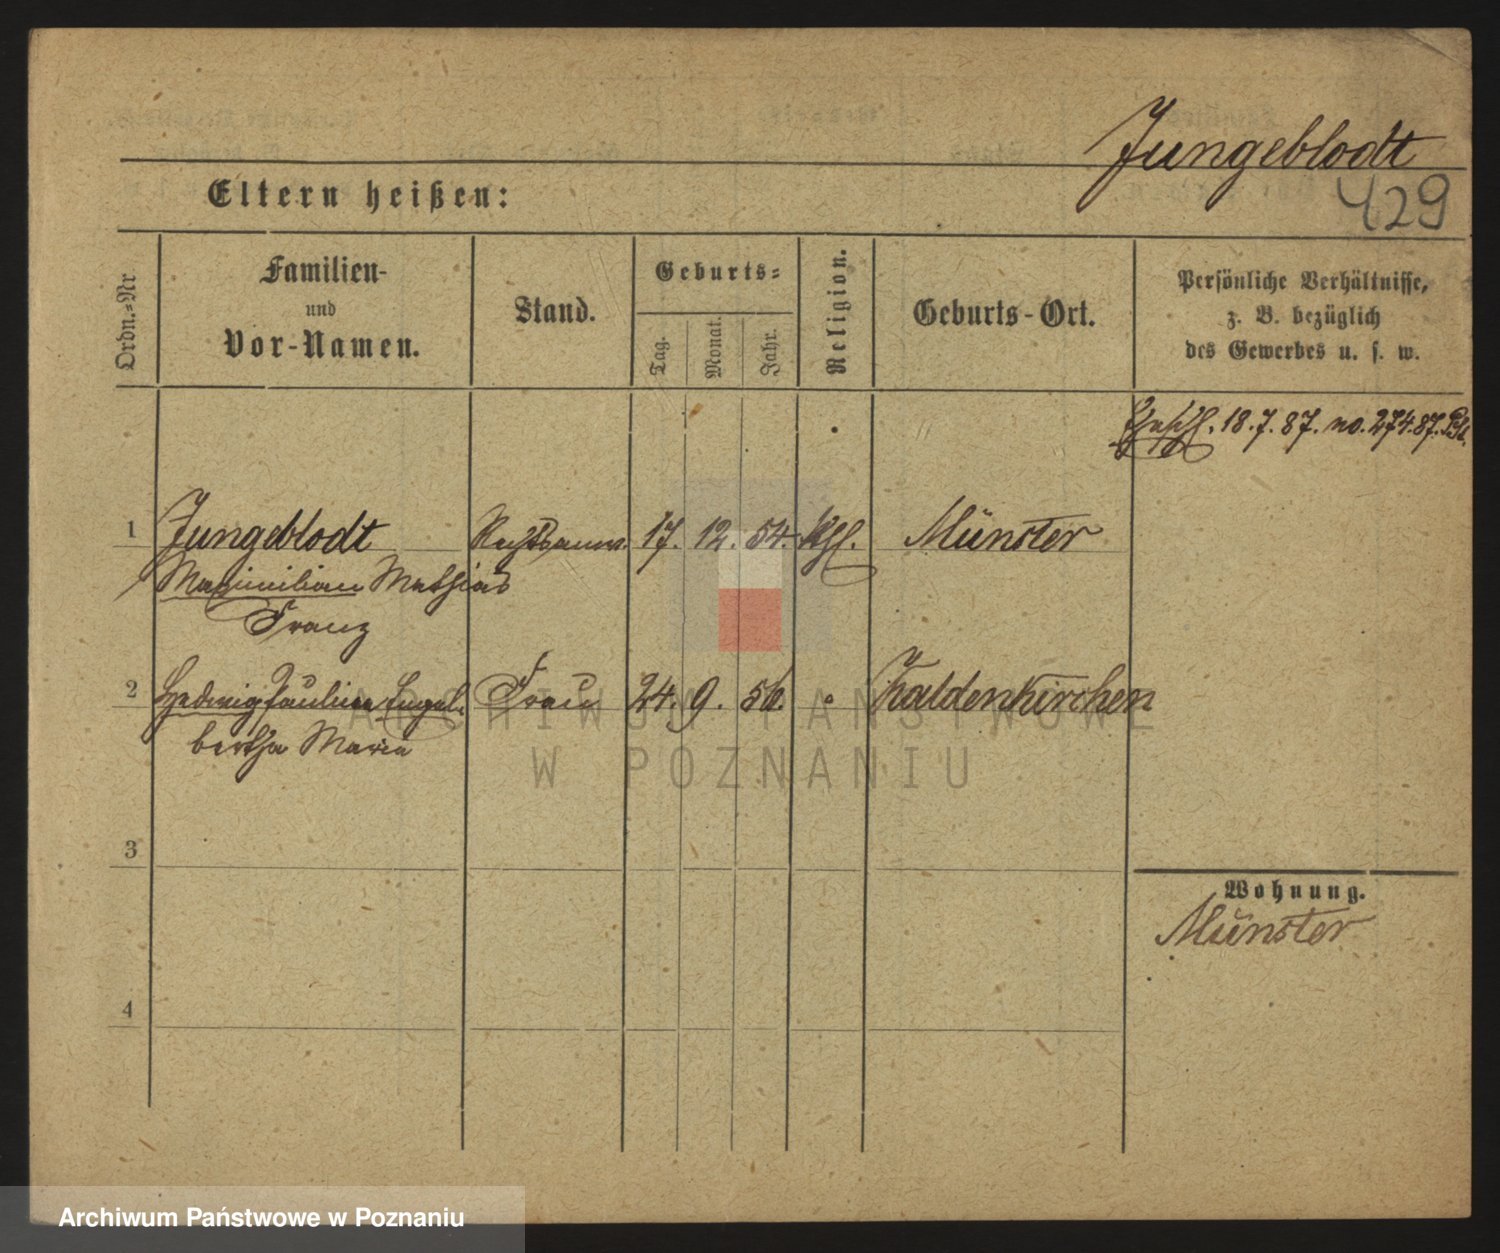 Jungeblodt
429
Eltern heißen:
Ordn.-Nr
Familien-
und
Vor-Namen.
Stand.
Geburts-
Tag.
Monat.
Jahr.
Religion.
Geburts-Ort.
Persönliche Verhältnisse,
z. B. bezüglich
des Gewerbes u. s. w.
18.7.87. no. 274.87.
1 Jungeblodt Rechtsanw. 17. 12. 54. kth. Münster
Maximilian Mathias
Franz
2 Hedwig Pauline Engel- Frau 24. 9. 56. " Kaldenkirchen
bertha Maria
3
Wohnung.
Münster
4
ARCHIWUM PAŃSTWOWE
W POZNANIU
Archiwum Państwowe w Poznaniu